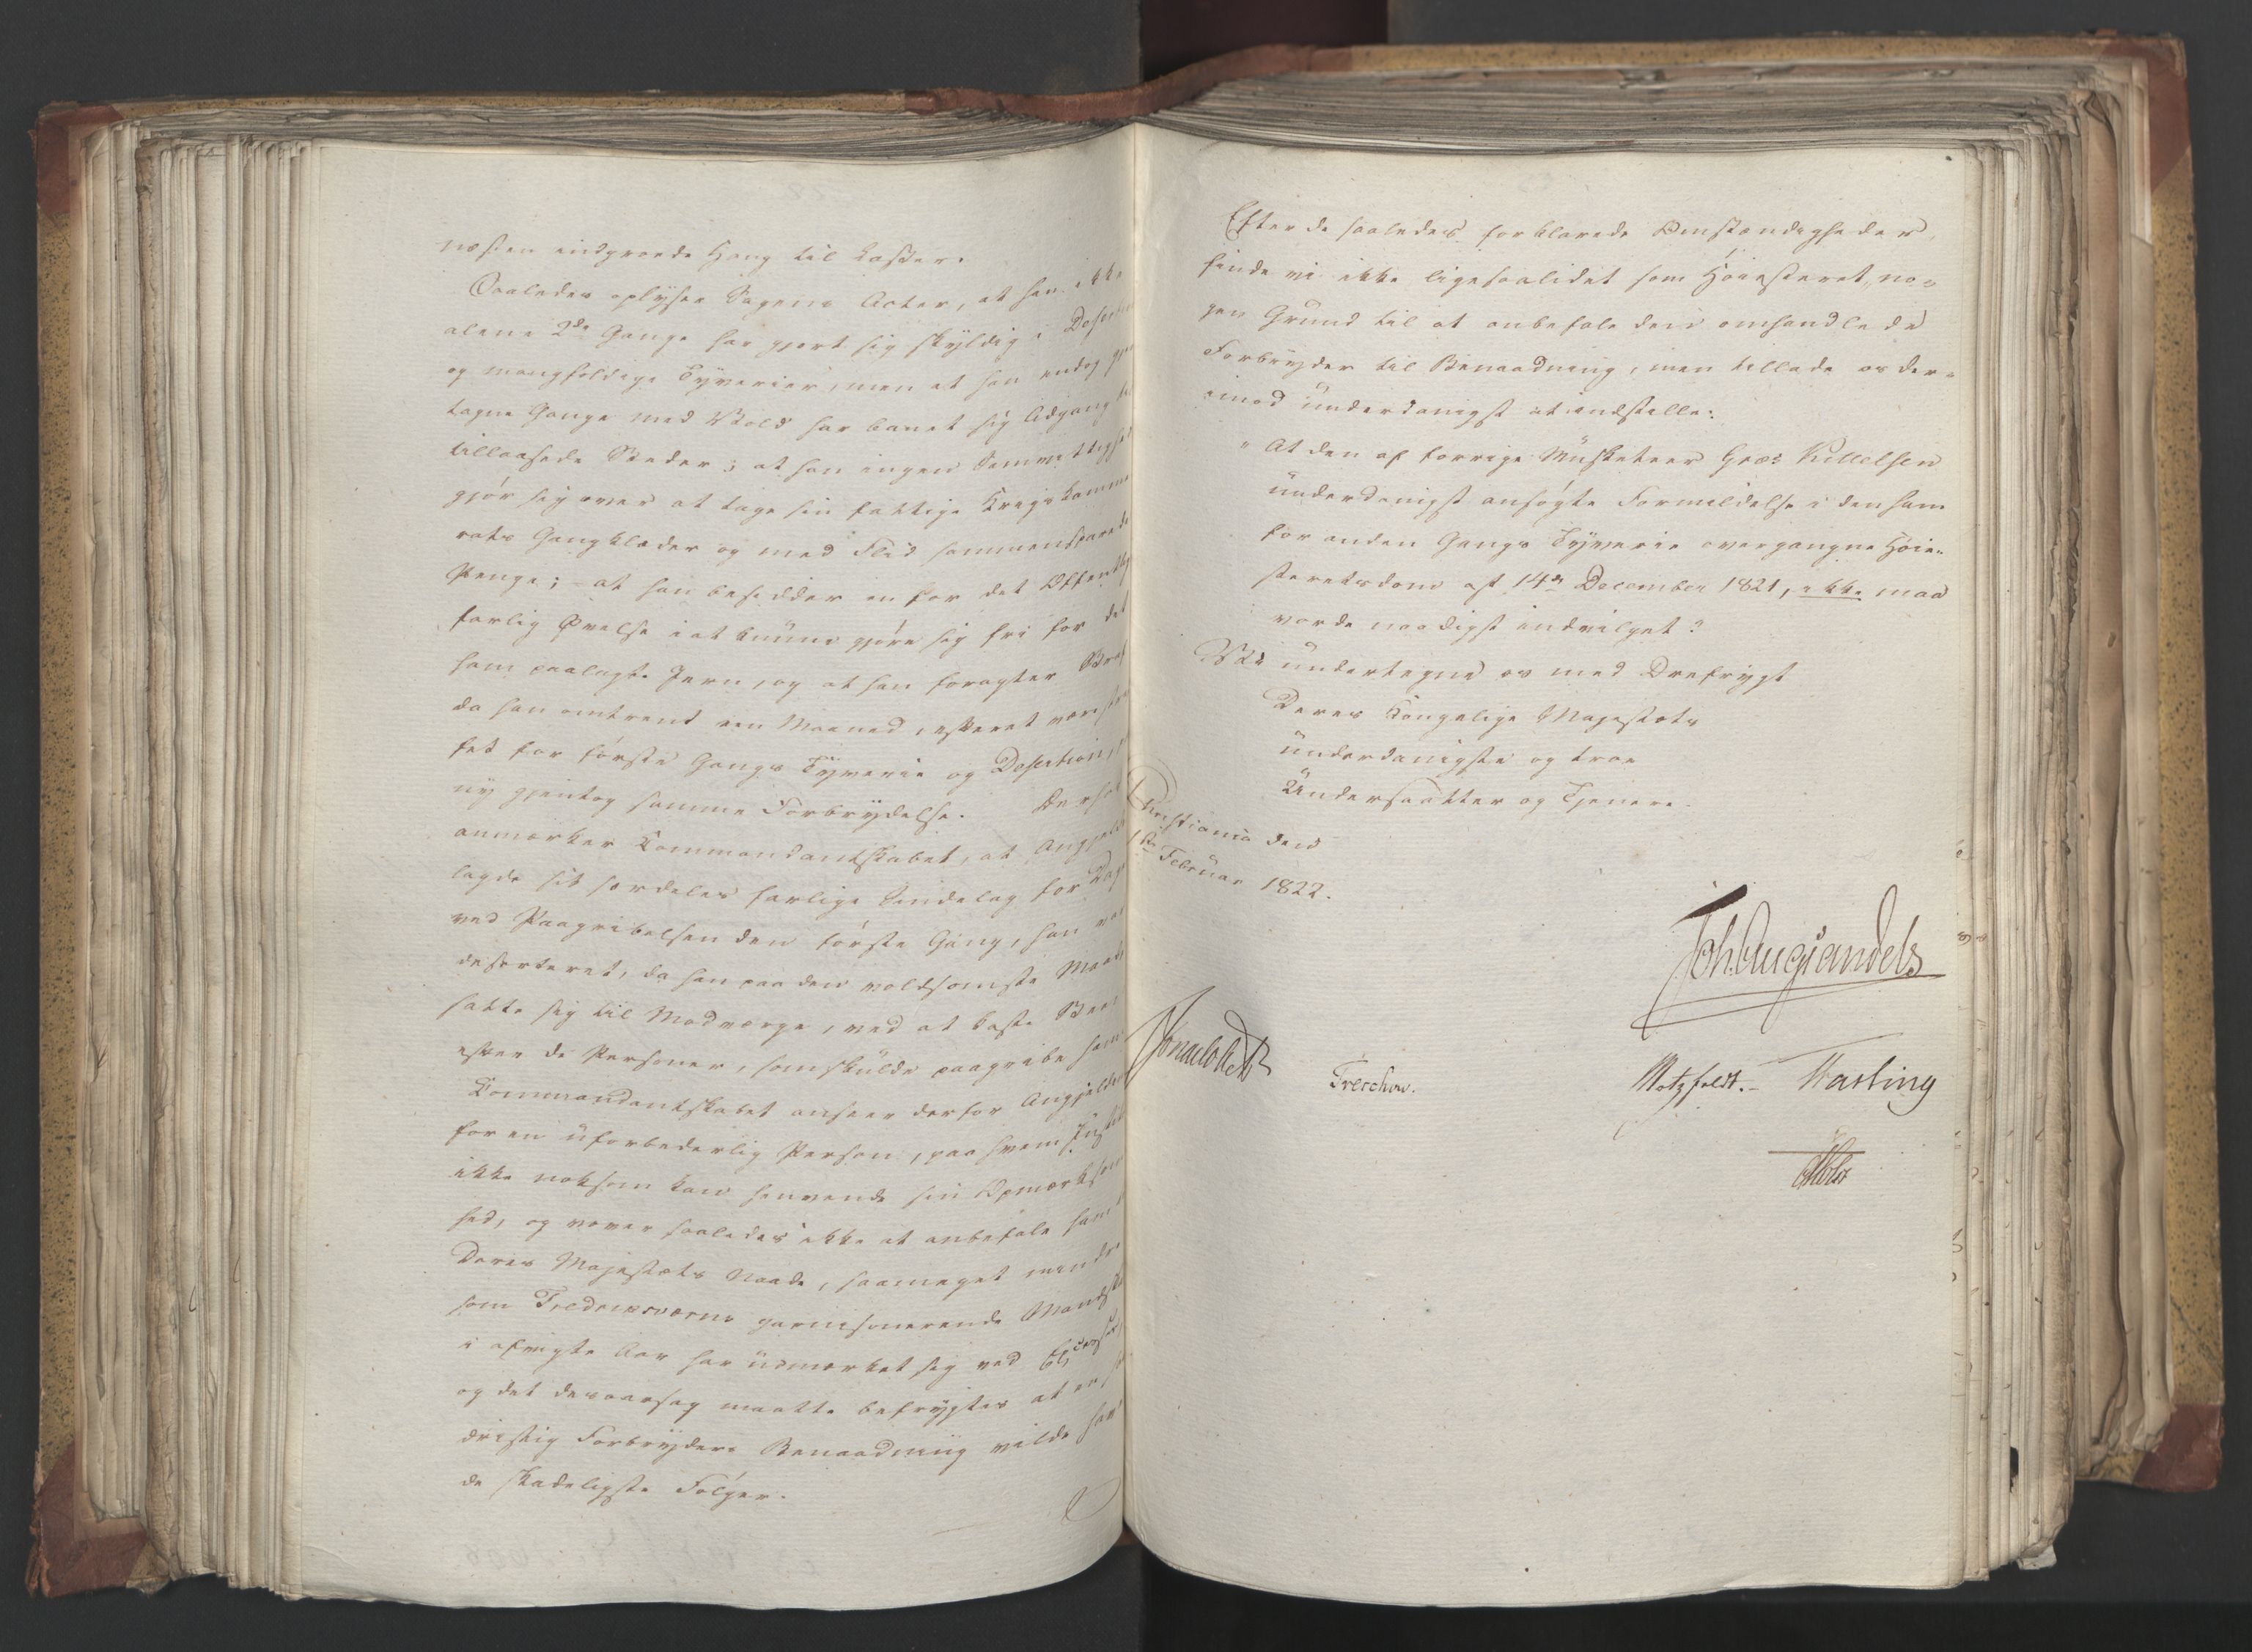 næsten indgroede Hang til Laster.
Saaledes oplyser Sagens Acter, at han ikke
alene 2de Gange har gjort sig skyldig i Desertion
og mangfoldige Tyverier, men at han endog gjen
tagne Gange med Vold har banet sig Adgang til
tillaasede Steder; at han ingen Samvittighed
gjør sig over at tage sin fattige Krigskamme
rats Gangklæder og med Flid sammensparede
Penge; at han besidder en for det Offentlige
farlig Øvelse i at kunne gjøre sig fri for det
ham paalagte Jern, og at han foragter Straf
da han omtrent een Maaned, efterat være straf
fet for første Gangs Tyverie og Desertion, paa
ny gjentog samme Forbrydelse. Derhos
anmærker Commandantskabet, at Angjeldende
lagde sit særdeles farlige Sindelag for Dagen
ved Paagribelsen den første Gang, han var
deserteret, da han paa den voldsomste Maade
satte sig til Modværge, ved at kaste Steen
efter de Personer, som skulde paagribe ham
Commandantskabet anseer derfor Angjeldende
for en uforbederlig Person, paa hvem Justitien
ikke noksom kan henvende sin Opmærksom
hed, og vover saaledes ikke at anbefale ham til
Deres Majestæts Naade, saameget mindre
som Fredriksværns garnisonerende Mandskab
i afvigte Aar har udmærket sig ved
og det desaarsag maatte befrygtes at en saa
dristig Forbryders Benaadning vilde have
de skadeligste Følger.
Efter de saaledes forklarede Omstændigheder,
finde vi ikke ligesaalidet som Høiesteret, no=
gen Grund til at anbefale den omhandlede
Forbryder til Benaadning, men tillade os der=
imod underdanigst at indstille:
"At den af forrige Musketeer Hans Killelsen
underdanigst ansøgte Formildelse i den ham
for anden Gangs Tyverie overgangne Høie=
steretsdom af 14de December 1821, ikke maa
vorde naadigst indvilget."
Vi undertegne os med Ærefrygt
Deres Kongelige Majestæts
underdanigste og troe
Undersaatter og Tjenere.
Christiania den
1ste Februar 1822.
Joh. Aug. Sandels
Sommerhielm
Treschow.
Motzfeldt. Fasting